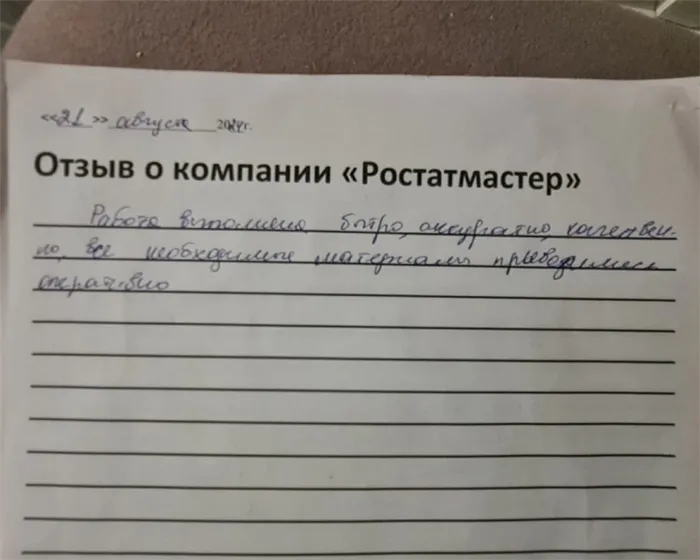 «21» августа 2024г.
Отзыв о компании «Ростатмастер»
Работа выполнена быстро, аккуратно, качествен-
но, все необходимые материалы привозились
оперативно